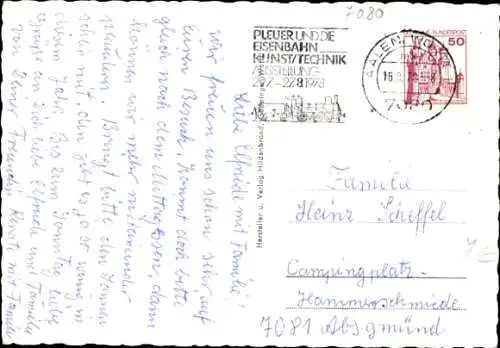 7080
PLEUER UND DIE
EISENBAHN
KUNST/TECHNIK
AUSSTELLUNG
29.7.-27.8.1978
AALEN
7080
BUNDESPOST
50
Hersteller u. Verlag Hildenbrand,
Liebe Elfriede mit Familie!
Wir freuen uns schon sehr auf
Euren Besuch. Kommt doch bitte
gleich nach dem Mittagessen, dann
können wir mehr miteinander
plaudern. Bringt bitte den Hannes
mit, den gibt es ja so wenig in
diesem Jahr. Bis zum Sonntag liebe
Grüße an Dich liebe Elfriede und Familie
von Deiner Freundin mit Familie
Familie
Heinz Scheffel
Campingplatz-
Hammerschmiede
7081 Absgmünd